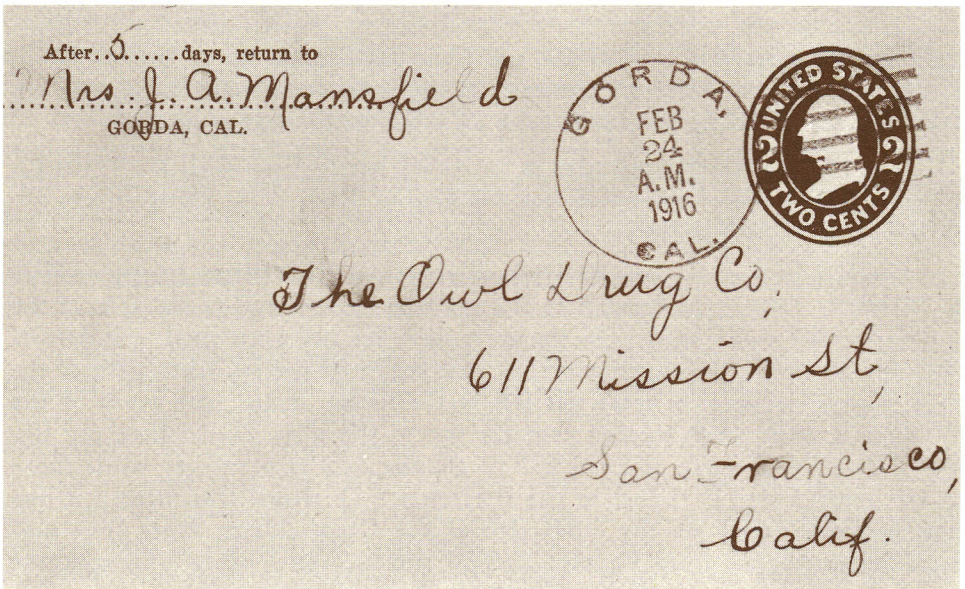 After..5......days, return to
Mrs. J. A. Mansfield
GORDA, CAL.
GORDA,
FEB
24
A.M.
1916
CAL.
UNITED STATES
2 2
TWO CENTS
The Owl Drug Co,
611 Mission St,
San Francisco,
Calif.